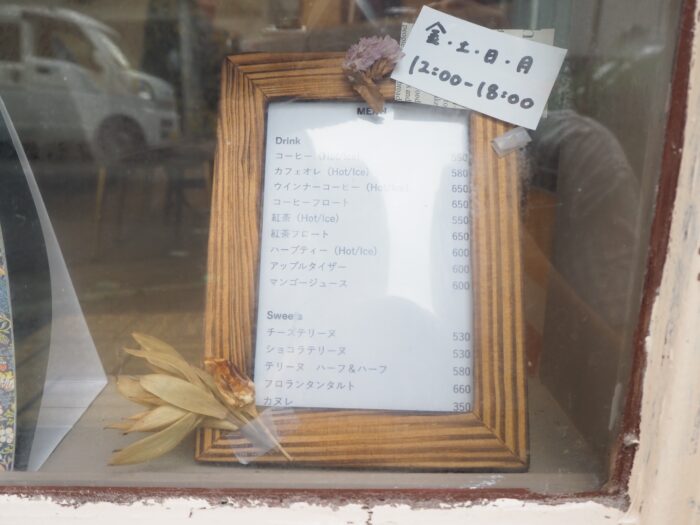 金・土・日・月
12:00-18:00
MENU
Drink
コーヒー (Hot/Ice) 550
カフェオレ (Hot/Ice) 580
ウインナーコーヒー (Hot/Ice) 650
コーヒーフロート 650
紅茶 (Hot/Ice) 550
紅茶フロート 650
ハーブティー (Hot/Ice) 600
アップルタイザー 600
マンゴージュース 600
Sweets
チーズテリーヌ 530
ショコラテリーヌ 530
テリーヌ ハーフ&ハーフ 580
フロランタンタルト 660
カヌレ 350